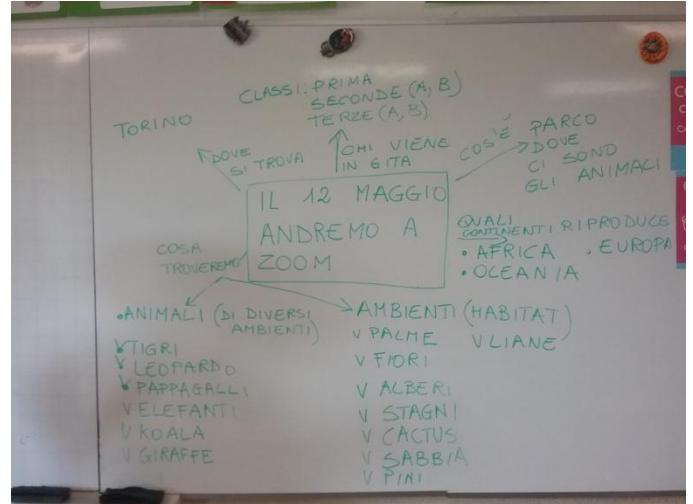 CLASSI: PRIMA
SECONDE (A, B)
TERZE (A, B)
TORINO
DOVE
SI TROVA
CHI VIENE
IN GITA
COS'È
PARCO
DOVE
CI SONO
GLI ANIMALI
IL 12 MAGGIO
ANDREMO A
ZOOM
QUALI
CONTINENTI RIPRODUCE
• AFRICA . EUROPA
• OCEANIA
COSA
TROVEREMO
• ANIMALI (DI DIVERSI
AMBIENTI)
V TIGRI
V LEOPARDO
V PAPPAGALLI
V ELEFANTI
V KOALA
V GIRAFFE
AMBIENTI (HABITAT)
V PALME V LIANE
V FIORI
V ALBERI
V STAGNI
V CACTUS
V SABBIA
V PINI